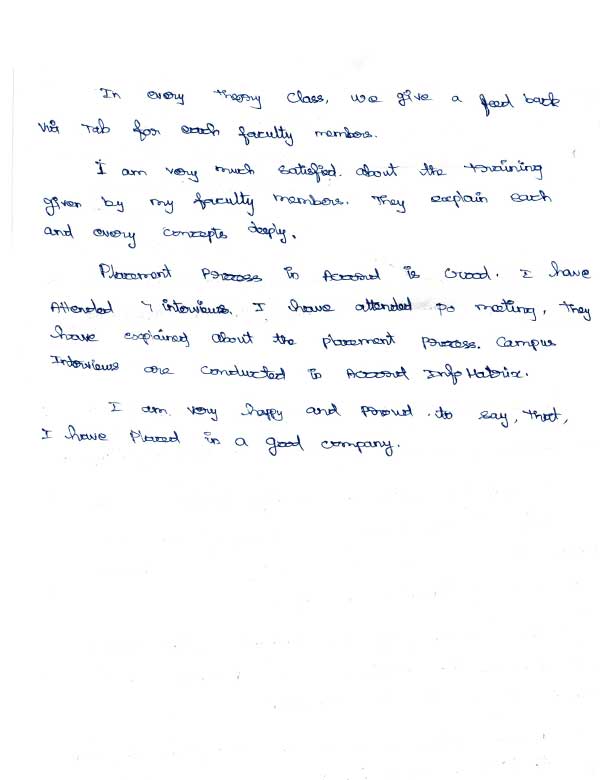 In every theory class, we give a feed back
via Tab for each faculty members.
I am very much satisfied. about the training
given by my faculty members. They explain each
and every concepts deeply.
Placement Process in Accord is Good. I have
Attended 7 interviews. I have attended po meeting, they
have explained about the placement process. Campus
Interviews are conducted in Accord Info Matrix.
I am very happy and proud to say, that,
I have Placed in a good company.